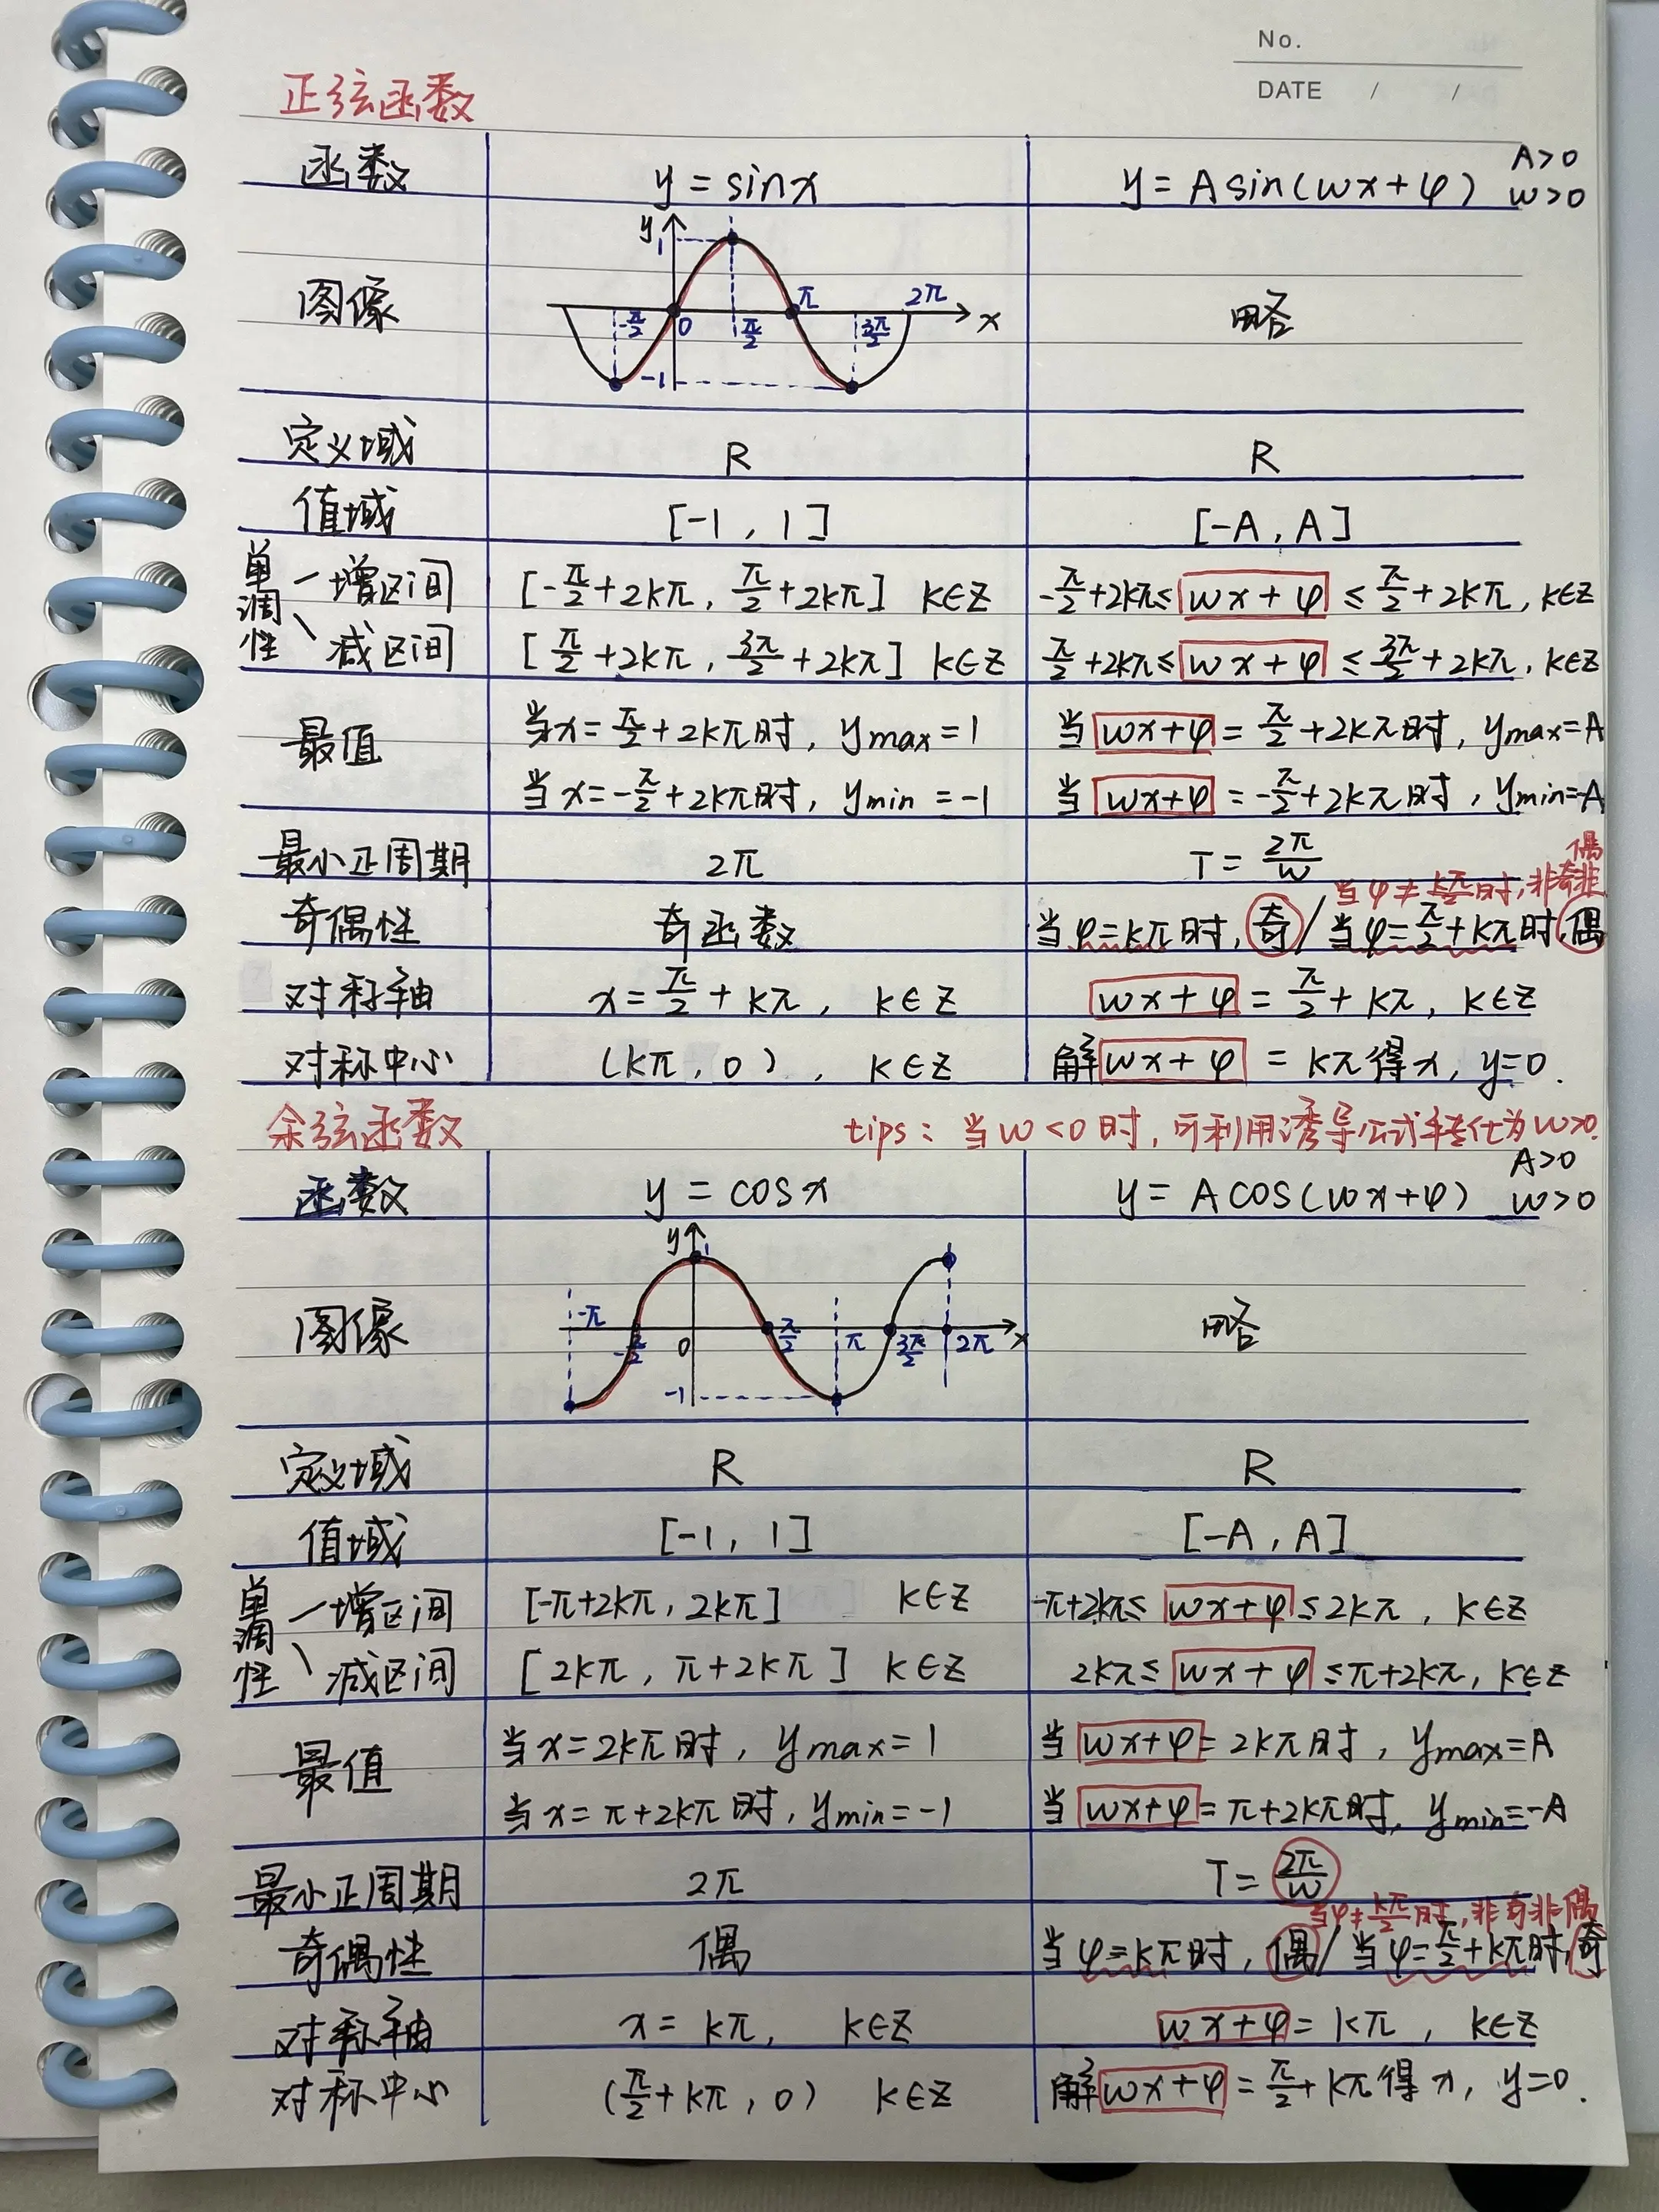 No.
DATE / /
正弦函数
函数 y=sinx y=Asin(wx+φ) A>0 w>0
图像 略
y 1 π 2π
-π/2 0 π/2 3π/2 x
-1
定义域 R R
值域 [-1, 1] [-A, A]
单调性 增区间 [-π/2+2kπ, π/2+2kπ] k∈Z -π/2+2kπ≤wx+φ≤π/2+2kπ, k∈Z
减区间 [π/2+2kπ, 3π/2+2kπ] k∈Z π/2+2kπ≤wx+φ≤3π/2+2kπ, k∈Z
最值 当x=π/2+2kπ时, ymax=1 当wx+φ=π/2+2kπ时, ymax=A
当x=-π/2+2kπ时, ymin=-1 当wx+φ=-π/2+2kπ时, ymin=-A
最小正周期 2π T=2π/w
当φ≠kπ/2时, 非奇非偶
奇偶性 奇函数 当φ=kπ时, 奇/当φ=π/2+kπ时, 偶
对称轴 x=π/2+kπ, k∈Z wx+φ=π/2+kπ, k∈Z
对称中心 (kπ, 0), k∈Z 解wx+φ=kπ得x, y=0.
余弦函数 tips: 当w<0时, 可利用诱导公式转化为w>0.
函数 y=cosx y=Acos(wx+φ) A>0 w>0
图像 略
y 1
-π -π/2 0 π/2 π 3π/2 2π x
-1
定义域 R R
值域 [-1, 1] [-A, A]
单调性 增区间 [-π+2kπ, 2kπ] k∈Z -π+2kπ≤wx+φ≤2kπ, k∈Z
减区间 [2kπ, π+2kπ] k∈Z 2kπ≤wx+φ≤π+2kπ, k∈Z
最值 当x=2kπ时, ymax=1 当wx+φ=2kπ时, ymax=A
当x=π+2kπ时, ymin=-1 当wx+φ=π+2kπ时, ymin=-A
最小正周期 2π T=2π/w
当φ≠kπ/2时, 非奇非偶
奇偶性 偶 当φ=kπ时, 偶/当φ=π/2+kπ时, 奇
对称轴 x=kπ, k∈Z wx+φ=kπ, k∈Z
对称中心 (π/2+kπ, 0) k∈Z 解wx+φ=π/2+kπ得x, y=0.